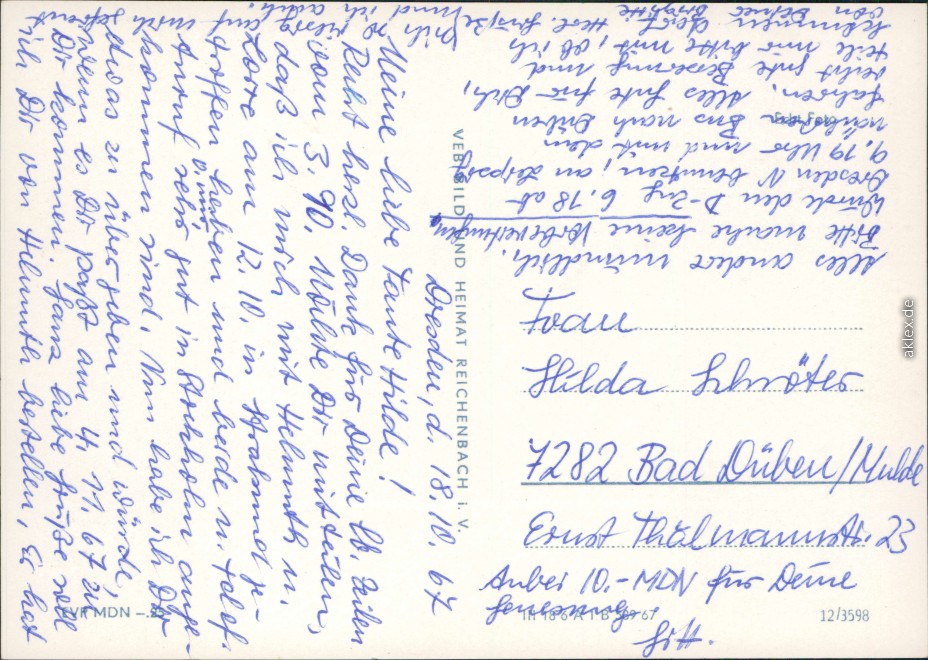 Dresden, d. 18. 10. 67
Meine liebe Tante Hilde!
Recht herzl. Dank für Deine lb. Zeilen
vom 3. 90. Wollte Dir mitteilen,
daß ich mich mit Helmuth u.
Lore am 12. 10. in Stralsund ge-
troffen haben und beide u. telef.
Anruf sehr gut in Stockholm ange-
kommen sind. Nun habe ich Dir
etwas zu übergeben und würde,
wenn es Dir paßt am 4. 11. 67 zu
Dir kommen. Ganz liebe Grüße soll
ich Dir von Helmuth bestellen, Er hat
und ich auch.
Alles andere mündlich.
Bitte mache keine Vorbereitungen
Würde den D-Zug 6.18 ab
Dresden N benutzen, an Leipzig
9,19 Uhr und mit dem
nächsten Bus nach Düben
fahren. Alles Gute für Dich,
recht gute Besserung und
teile mir bitte mit, ob ich
kommen darf. Herz. Grüße
von Deiner
VEB BILD UND HEIMAT REICHENBACH i. V.
Frau
Hilda Schröter
7282 Bad Düben/Mulde
Ernst Thälmannstr. 23
Anbei 10.- MDN für Deine
12/3598
EVP MDN –.25
aklex.de